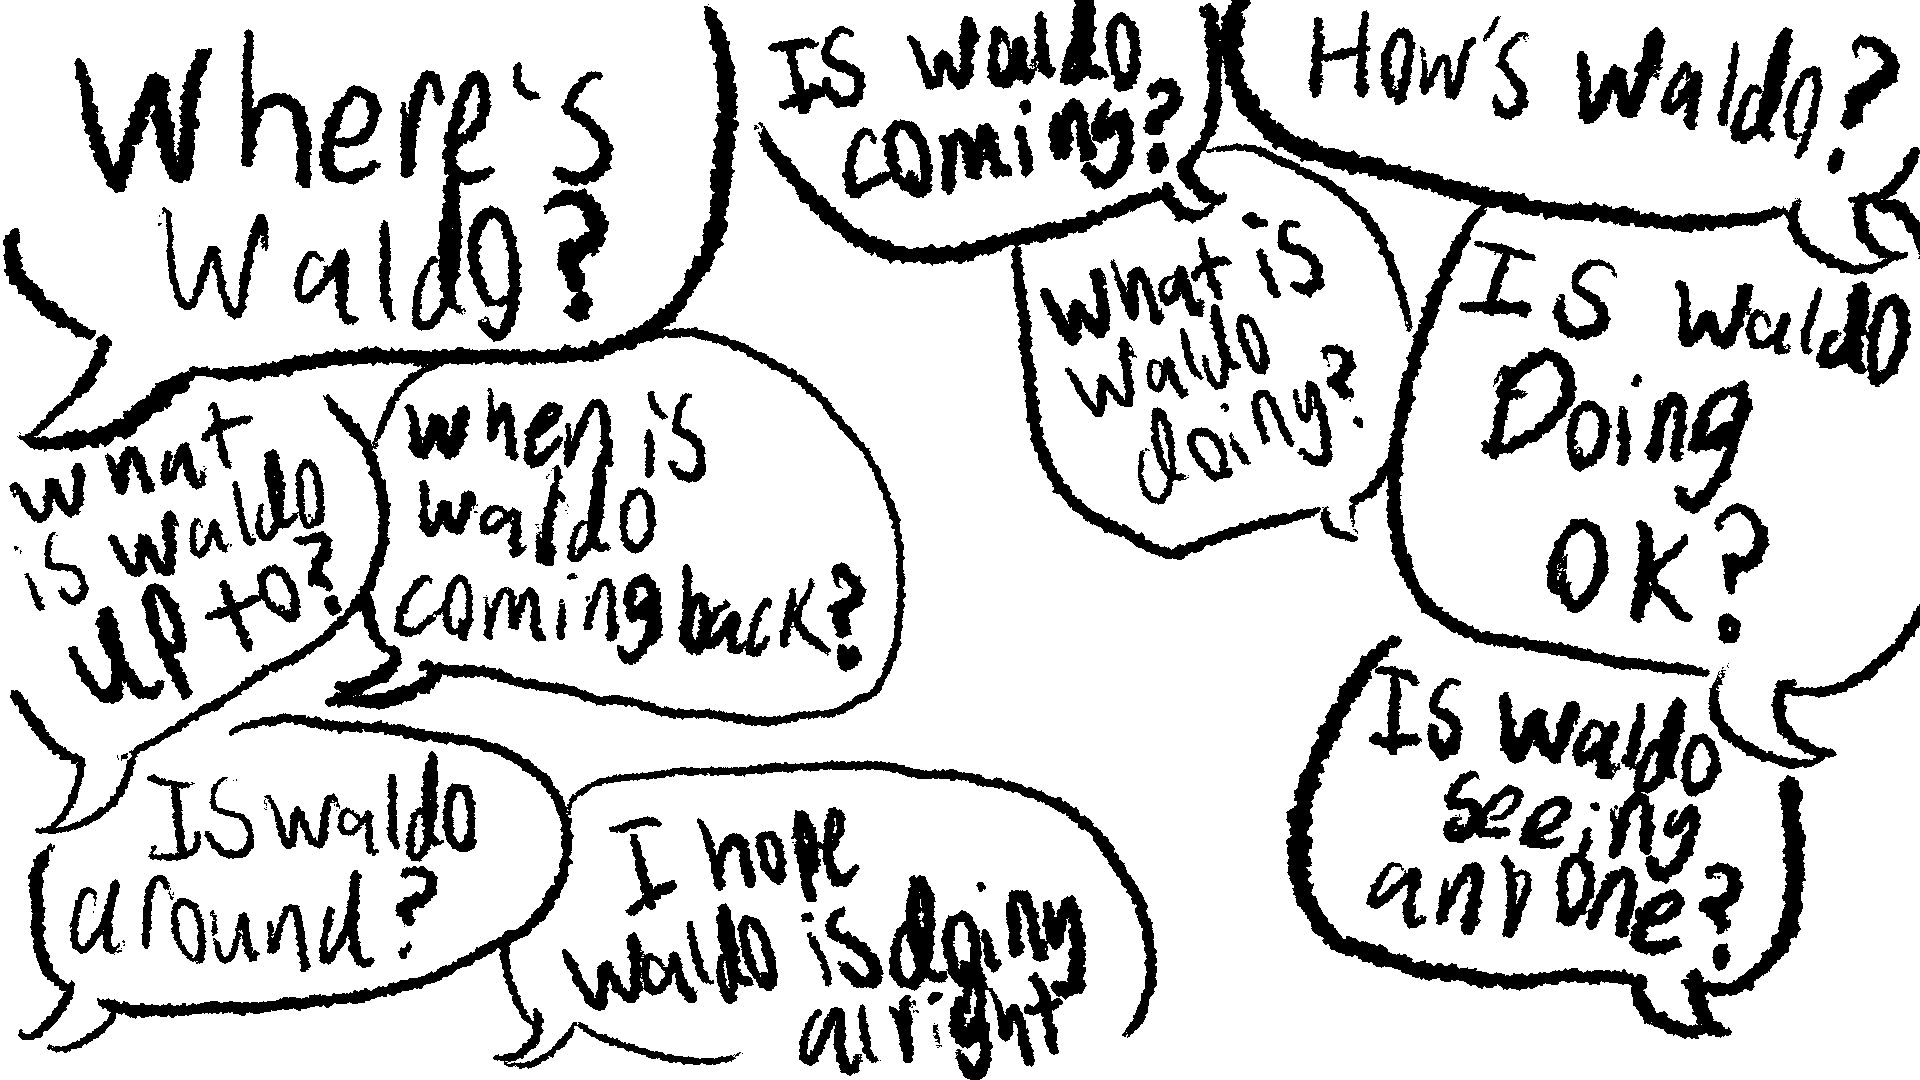 Where's
Waldo?
Is waldo
coming?
How's waldo?
What is
waldo
doing?
Is waldo
Doing
OK?
what
is waldo
up to?
when is
waldo
coming back?
Is waldo
seeing
anyone?
Is waldo
around?
I hope
waldo is doing
alright